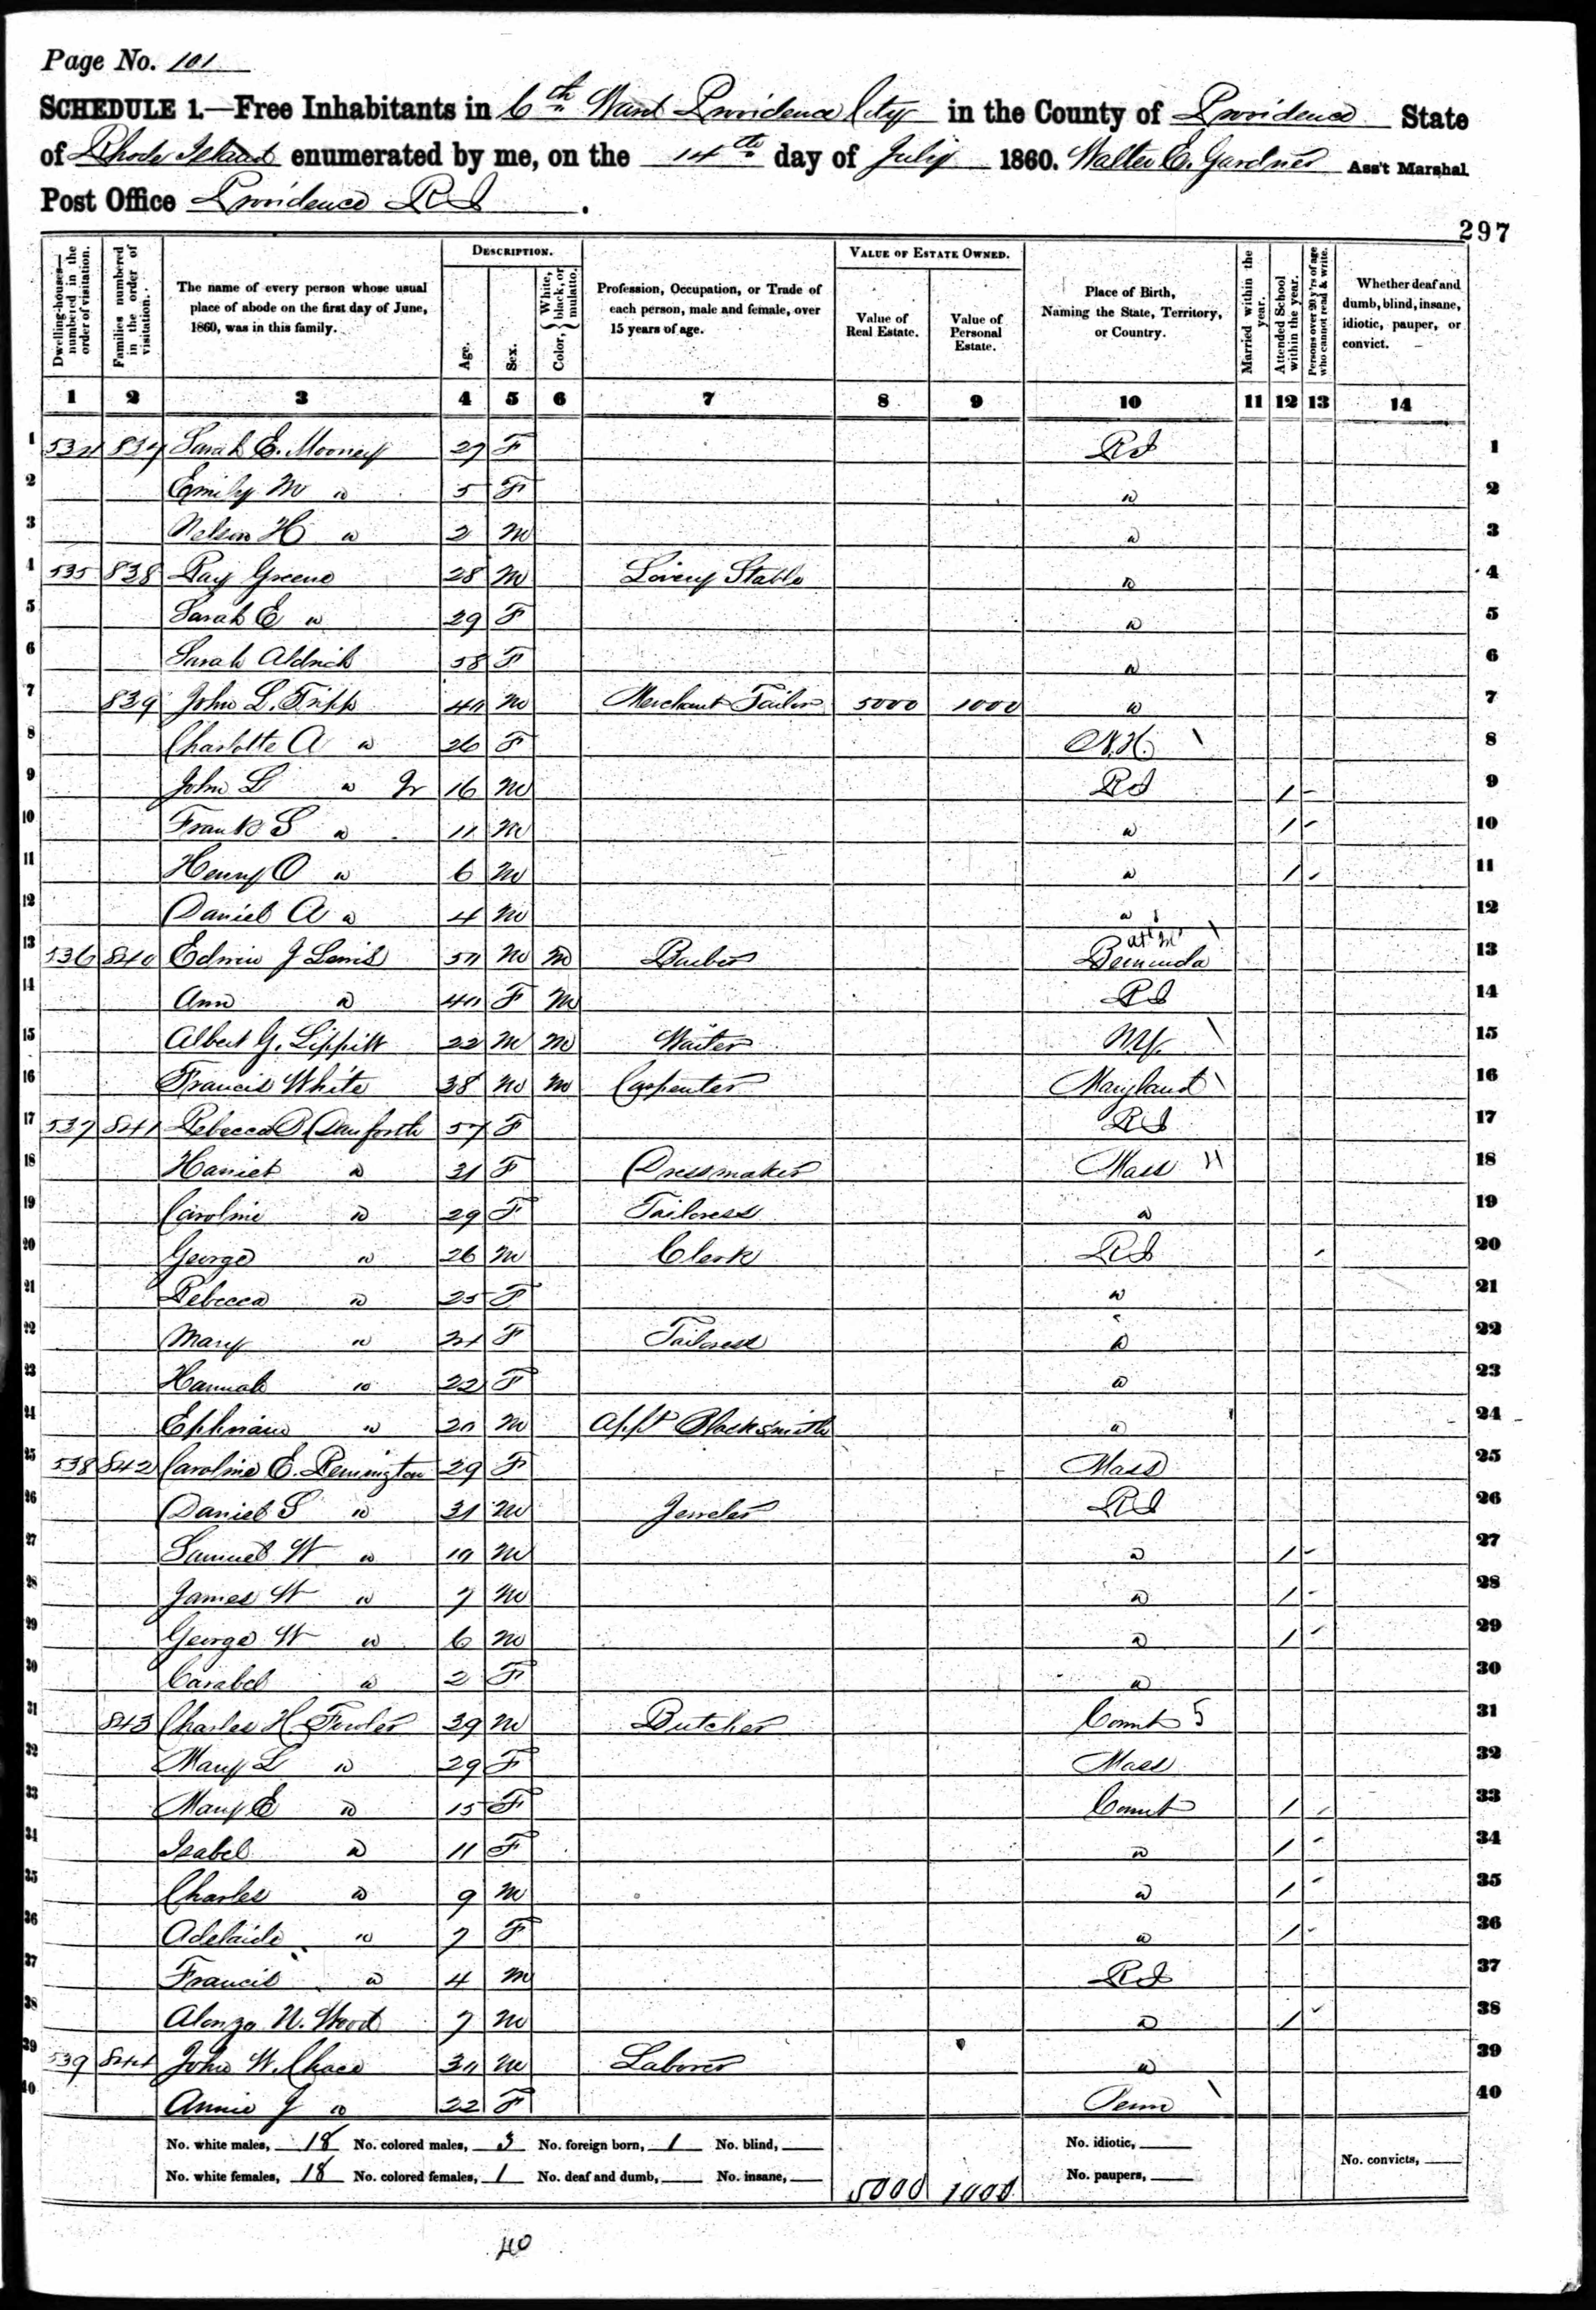 Page No. 101
SCHEDULE 1.—Free Inhabitants in 6th Ward Providence City in the County of Providence State
of Rhode Island enumerated by me, on the 14th day of July 1860. Walter E. Gardner Ass't Marshal.
Post Office Providence RI.
297
Dwelling-houses—numbered in the order of visitation.
Families numbered in the order of visitation.
The name of every person whose usual place of abode on the first day of June, 1860, was in this family.
DESCRIPTION.
Age.
Sex.
Color, { White, black, or mulatto.
Profession, Occupation, or Trade of each person, male and female, over 15 years of age.
VALUE OF ESTATE OWNED.
Value of Real Estate.
Value of Personal Estate.
Place of Birth, Naming the State, Territory, or Country.
Married within the year.
Attended School within the year.
Persons over 20 y'rs of age who cannot read & write.
Whether deaf and dumb, blind, insane, idiotic, pauper, or convict.
1 2 3 4 5 6 7 8 9 10 11 12 13 14
1 534 837 Sarah E. Mooney 27 F RI 1
2 Emily M " 5 F " 2
3 Nelson H " 2 M " 3
4 535 838 Ray Greene 28 M Livery Stable " 4
5 Sarah E " 29 F " 5
6 Sarah Aldrich 58 F " 6
7 839 John L. Tripp 40 M Merchant Tailor 5000 1000 " 7
8 Charlotte A " 26 F N.H. \ 8
9 John L " Jr 16 M RI / 9
10 Frank S " 11 M " / 10
11 Henry O " 6 M " / 11
12 Daniel A " 4 M " 12
13 536 840 Edwin J Lewis 50 M M Barber Bermuda \ 13
14 Ann " 40 F M RI 14
15 Albert G. Lippitt 22 M M Waiter N.Y. \ 15
16 Francis White 38 M M Carpenter Maryland \ 16
17 537 841 Rebecca D Danforth 57 F RI 17
18 Harriet " 31 F Dressmaker Mass \\ 18
19 Caroline " 29 F Tailoress " 19
20 George " 26 M Clerk RI 20
21 Rebecca " 25 F " 21
22 Mary " 24 F Tailoress " 22
23 Hannah " 22 F " 23
24 Ephriam " 20 M Appt Blacksmith " 24
25 538 842 Caroline E. Remington 29 F Mass 25
26 Daniel S " 31 M Jeweler RI 26
27 Samuel W " 10 M " / 27
28 James W " 7 M " / 28
29 George W " 6 M " / 29
30 Carabel " 2 F " 30
31 843 Charles H. Fowler 39 M Butcher Connt 5 31
32 Mary L " 29 F Mass 32
33 Mary E " 15 F Connt / 33
34 Isabel " 11 F " / 34
35 Charles " 9 M " / 35
36 Adelaide " 7 F " / 36
37 Francis " 4 M RI 37
38 Alonzo N. Wood 7 M " / 38
39 539 844 John W. Chace 30 M Laborer " 39
40 Annie J " 22 F Penn \ 40
No. white males, 18 No. colored males, 3 No. foreign born, 1 No. blind, No. idiotic,
No. white females, 18 No. colored females, 1 No. deaf and dumb, No. insane, 5000 1000 No. paupers, No. convicts,
40